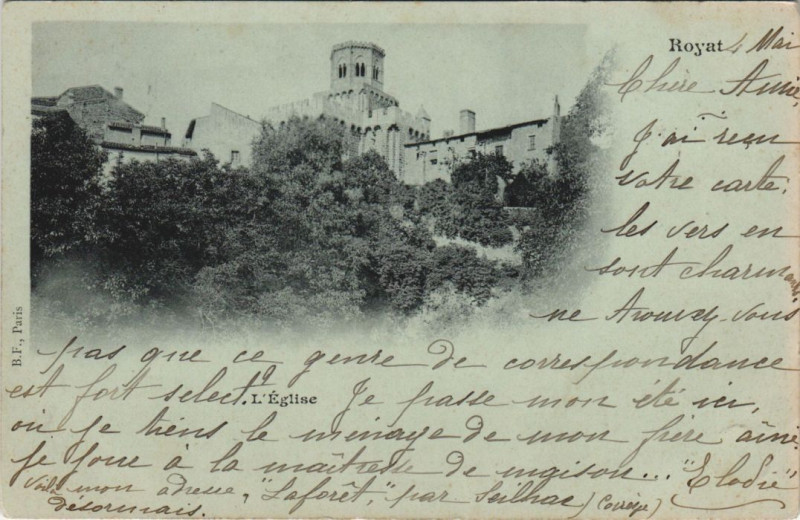 Royat 4 Mai
Chère Amie,
J'ai reçu
votre carte,
les vers en
sont charmants
ne trouvez-vous
pas que ce genre de correspondance
est fort select?
L'Église
Je passe mon été ici,
où je tiens le ménage de mon frère aîné
je joue à la maîtresse de maison... "Elodie"
Voilà mon adresse, "Laforêt," par Seilhac (Corrèze)
désormais.
B.F., Paris